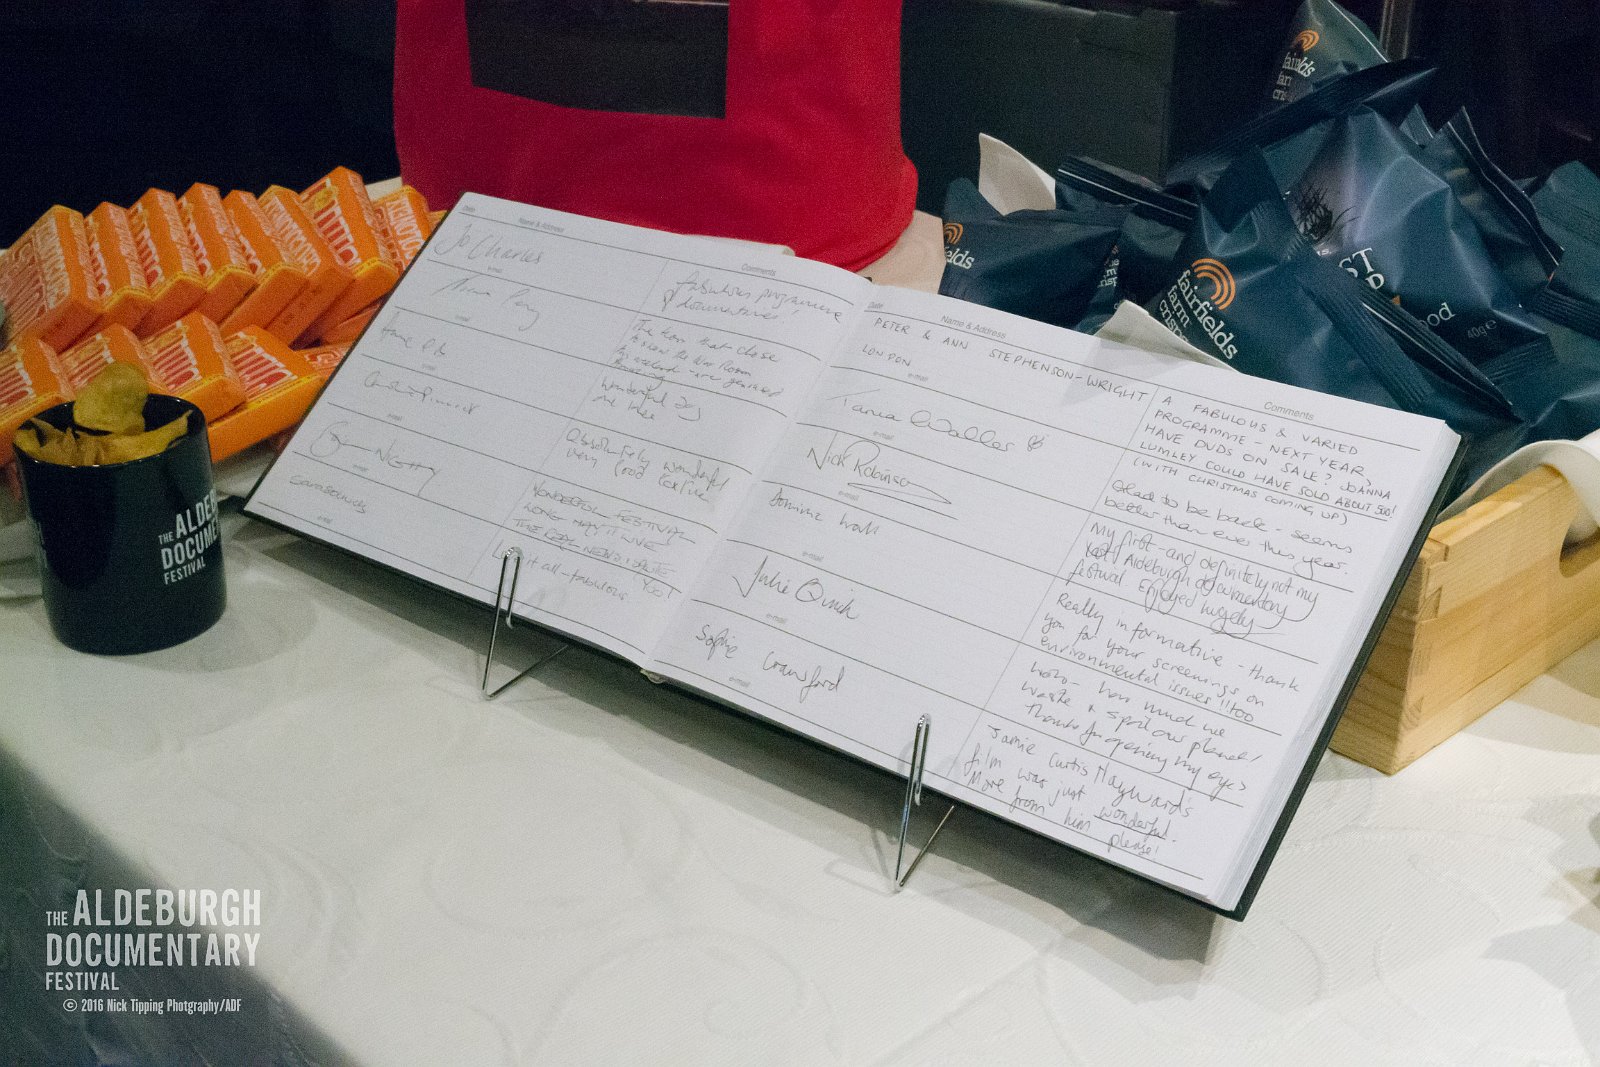 Date
Name & Address
Comments
Jo Charles
fabulous programme
of documentaries!
e-mail
The team that chose
to show the War Room
this weekend are geniuses
Amazing
e-mail
Wonderful
e-mail
Absolutely wonderful
very good
e-mail
WONDERFUL FESTIVAL
LONG MAY IT LIVE
THE REAL NEWS
TOO!
e-mail
it all - fabulous
Date
Name & Address
Comments
PETER & ANN STEPHENSON-WRIGHT
LONDON
e-mail
A FABULOUS & VARIED
PROGRAMME - NEXT YEAR,
HAVE DVDS ON SALE? JOANNA
LUMLEY COULD HAVE SOLD ABOUT 500!
(WITH CHRISTMAS COMING UP)
Tania Waller
e-mail
Glad to be back - seems
better than ever this year.
Nick Robinson
e-mail
My first - and definitely not my
last! Aldeburgh documentary
festival. Enjoyed hugely
Dominic
e-mail
Really informative - thank
you for your screenings on
environmental issues!! too
Julie Quick
e-mail
Wow - how much we
waste & spoil our planet!
Thanks for opening my eyes
Sophie Crawford
e-mail
Jamie Curtis Hayward's
film was just wonderful.
More from him
please!
THE ALDEBURGH
DOCUMENTARY
FESTIVAL
fairfields
farm
crisps
40g e
THE ALDEBURGH
DOCUMENTARY
FESTIVAL
© 2016 Nick Tipping Photgraphy/ADF